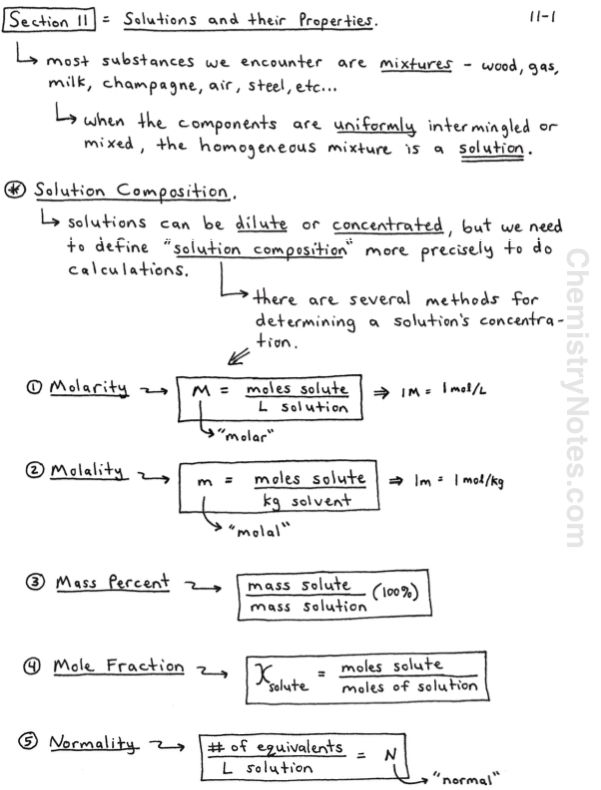 Section 11 = Solutions and their Properties.
11-1
↳ most substances we encounter are mixtures - wood, gas,
milk, champagne, air, steel, etc...
↳ when the components are uniformly intermingled or
mixed, the homogeneous mixture is a solution.
* Solution Composition.
↳ solutions can be dilute or concentrated, but we need
to define "solution composition" more precisely to do
calculations.
→ there are several methods for
determining a solution's concentra-
tion.
① Molarity → M = moles solute / L solution ⇒ 1M = 1 mol/L
→ "molar"
② Molality → m = moles solute / kg solvent ⇒ 1m = 1 mol/kg
→ "molal"
③ Mass Percent → mass solute / mass solution (100%)
④ Mole Fraction → Χsolute = moles solute / moles of solution
⑤ Normality → # of equivalents / L solution = N
→ "normal"
ChemistryNotes.com